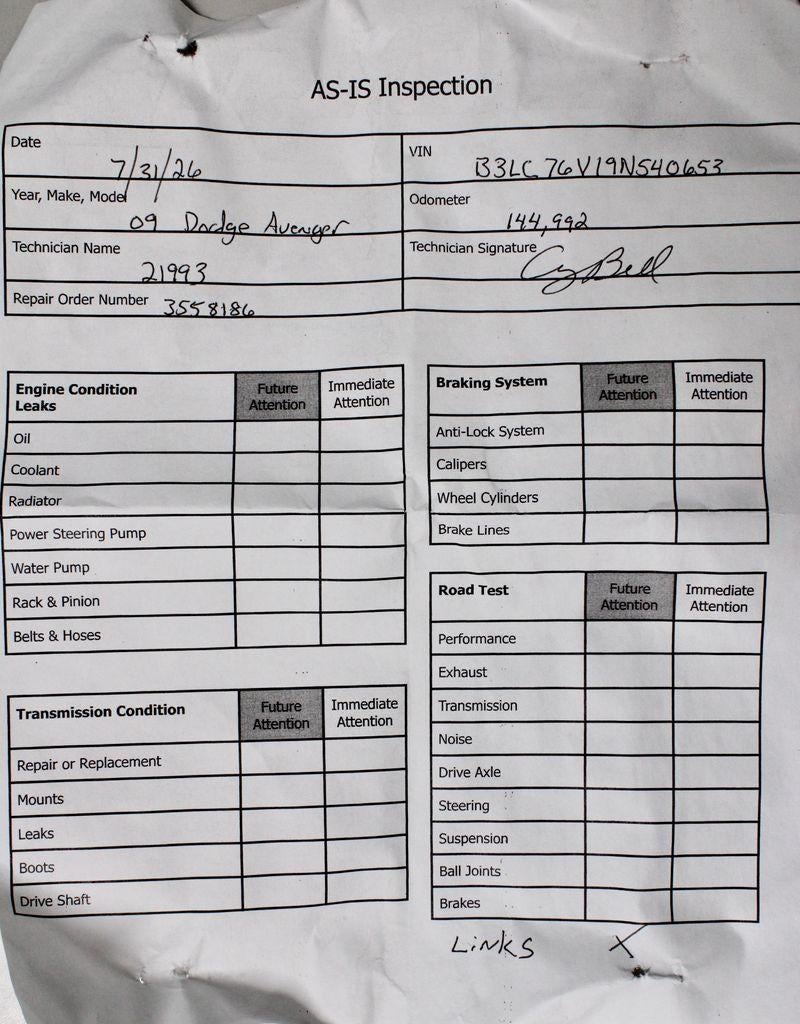 AS-IS Inspection
Date 7/31/26
VIN B3LC76V19N540653
Year, Make, Model 09 Dodge Avenger
Odometer 144,992
Technician Name 21993
Technician Signature Cory Bell
Repair Order Number 3558186
Engine Condition Leaks Future Attention Immediate Attention
Oil
Coolant
Radiator
Power Steering Pump
Water Pump
Rack & Pinion
Belts & Hoses
Transmission Condition Future Attention Immediate Attention
Repair or Replacement
Mounts
Leaks
Boots
Drive Shaft
Braking System Future Attention Immediate Attention
Anti-Lock System
Calipers
Wheel Cylinders
Brake Lines
Road Test Future Attention Immediate Attention
Performance
Exhaust
Transmission
Noise
Drive Axle
Steering
Suspension
Ball Joints
Brakes
LINKS X